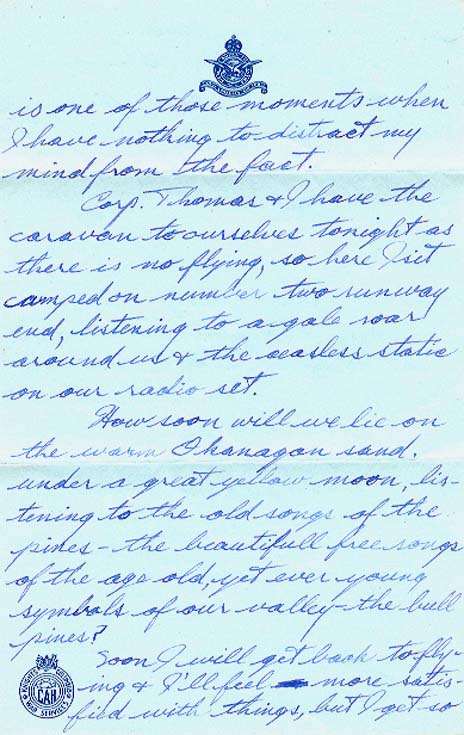 is one of those moments when
I have nothing to distract my
mind from the fact.
Corp. Thomas & I have the
caravan to ourselves tonight as
there is no flying, so here I sit
camped on number two runway
end, listening to a gale roar
around us & the ceasless static
on our radio set.
How soon will we lie on
the warm Okanagan sand.
under a great yellow moon, lis-
tening to the old songs of the
pines - the beautifull free songs
of the age old, yet ever young
symbols of our valley - the bull
pines?
Soon I will get back to fly-
ing & I'll feel more satis-
fied with things, but I get so
KNIGHTS OF COLUMBUS
CAH
WAR SERVICES